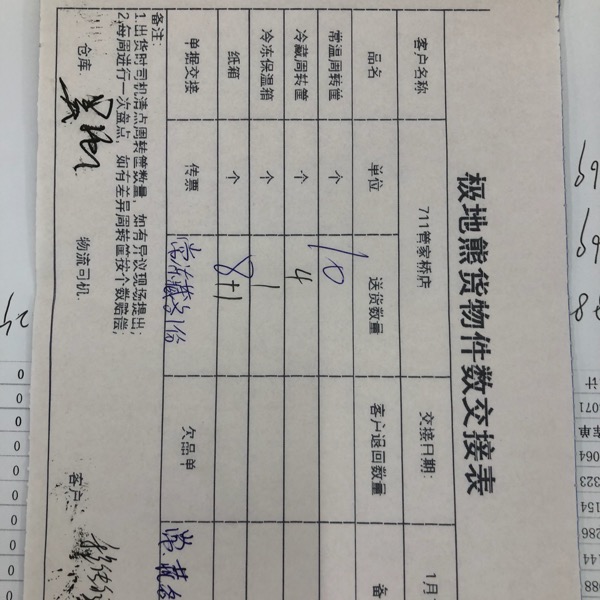 极地熊货物件数交接表
客户名称 711管家桥店 交接日期: 1月
品名 单位 送货数量 客户退回数量 备
常温周转筐 个 10
冷藏周转筐 个 4
冷冻保温箱 个 1
纸箱 个 8+1
单据交接 传票 常冻藏各1份 欠品单 常.藏各
备注:
1.出货时司机清点周转筐数量，如有异议现场提出;
2.每周进行一次盘点，如有差异周转筐按个数赔偿;
仓库: 物流司机: 客户:
计
071
库单
064
323
154
286
144
088
0
0
0
0
0
0
0
0
0